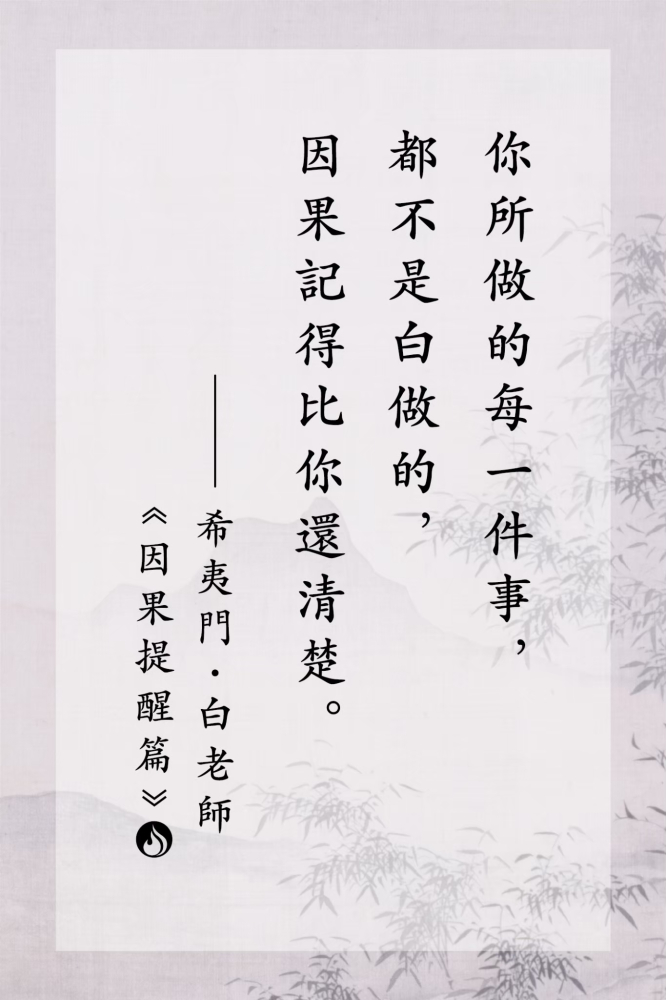 你所做的每一件事，
都不是白做的，
因果記得比你還清楚。
——希夷門·白老師
《因果提醒篇》